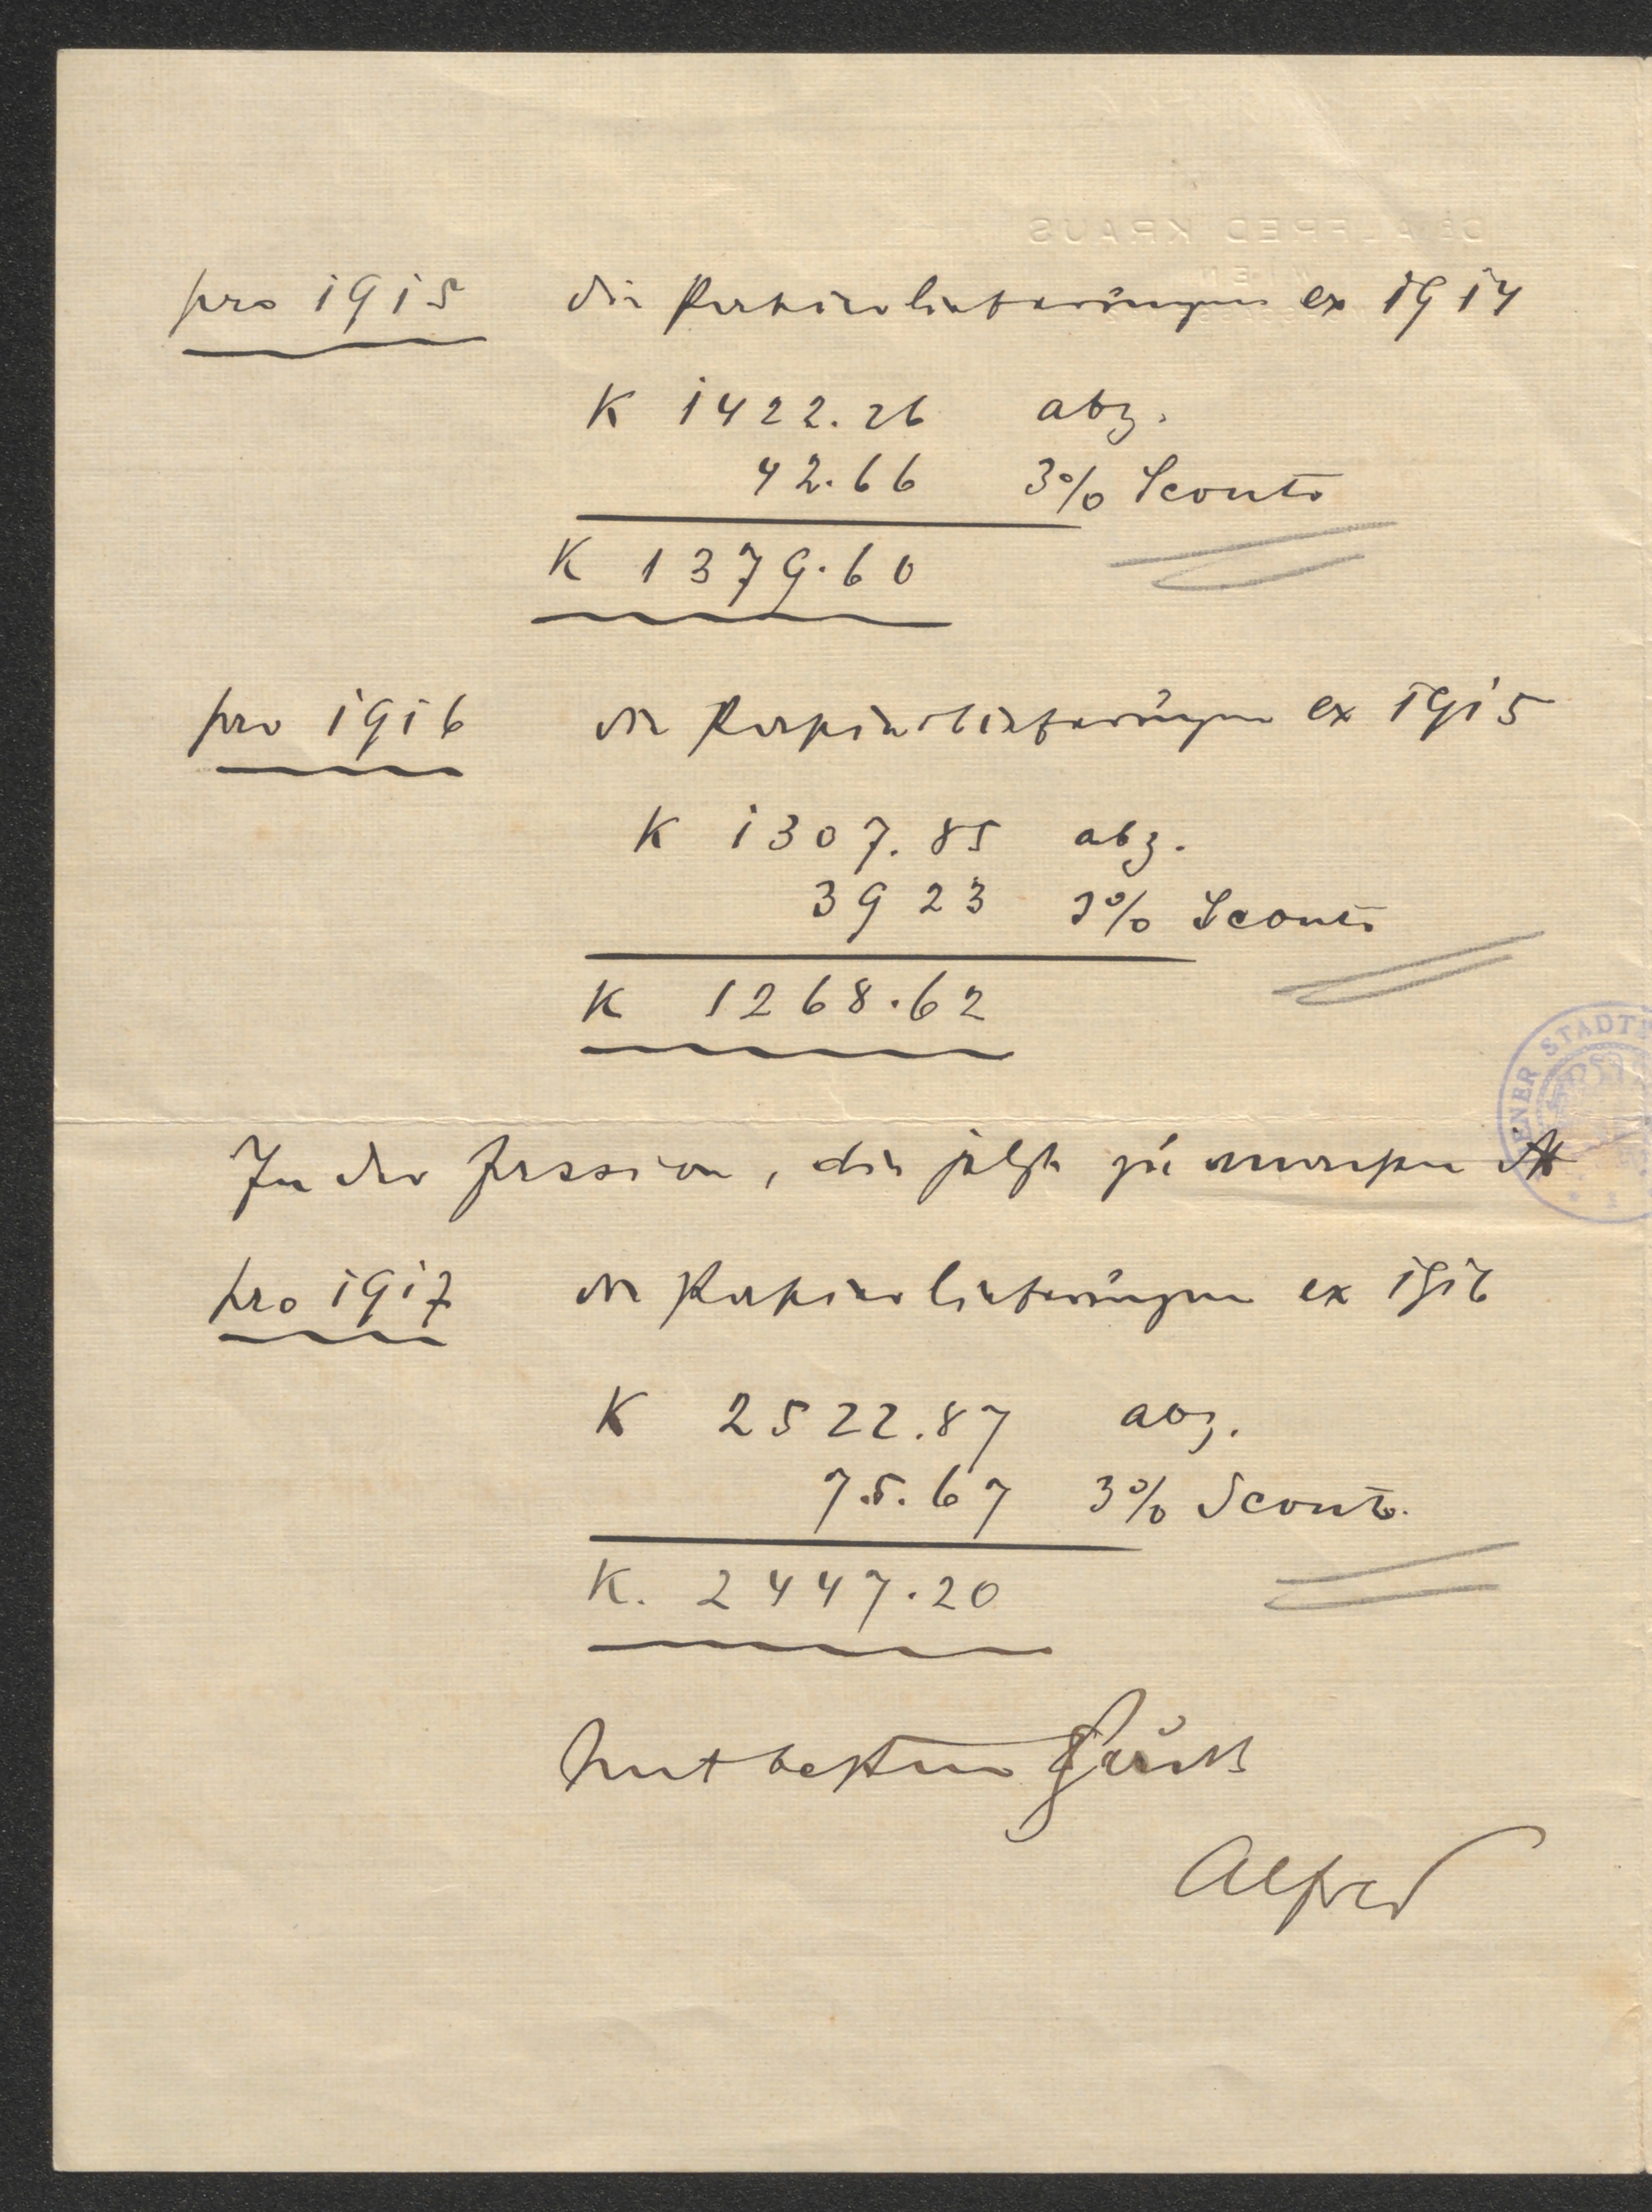 Dr. ALFRED KRAUS
WIEN
pro 1915 die Papierlieferungen ex 1914
K 1422.26 abz.
42.66 3% Sconto
K 1379.60
pro 1916 die Papierlieferungen ex 1915
K 1307.85 abz.
3923 3% Sconto
K 1268.62
In der Fession, die jetzt zu machen ist
pro 1917 die Papierlieferungen ex 1916
K 2522.87 abz.
75.67 3% Sconto.
K. 2447.20
mit bestem Gruß
Alfred
ENER STADT